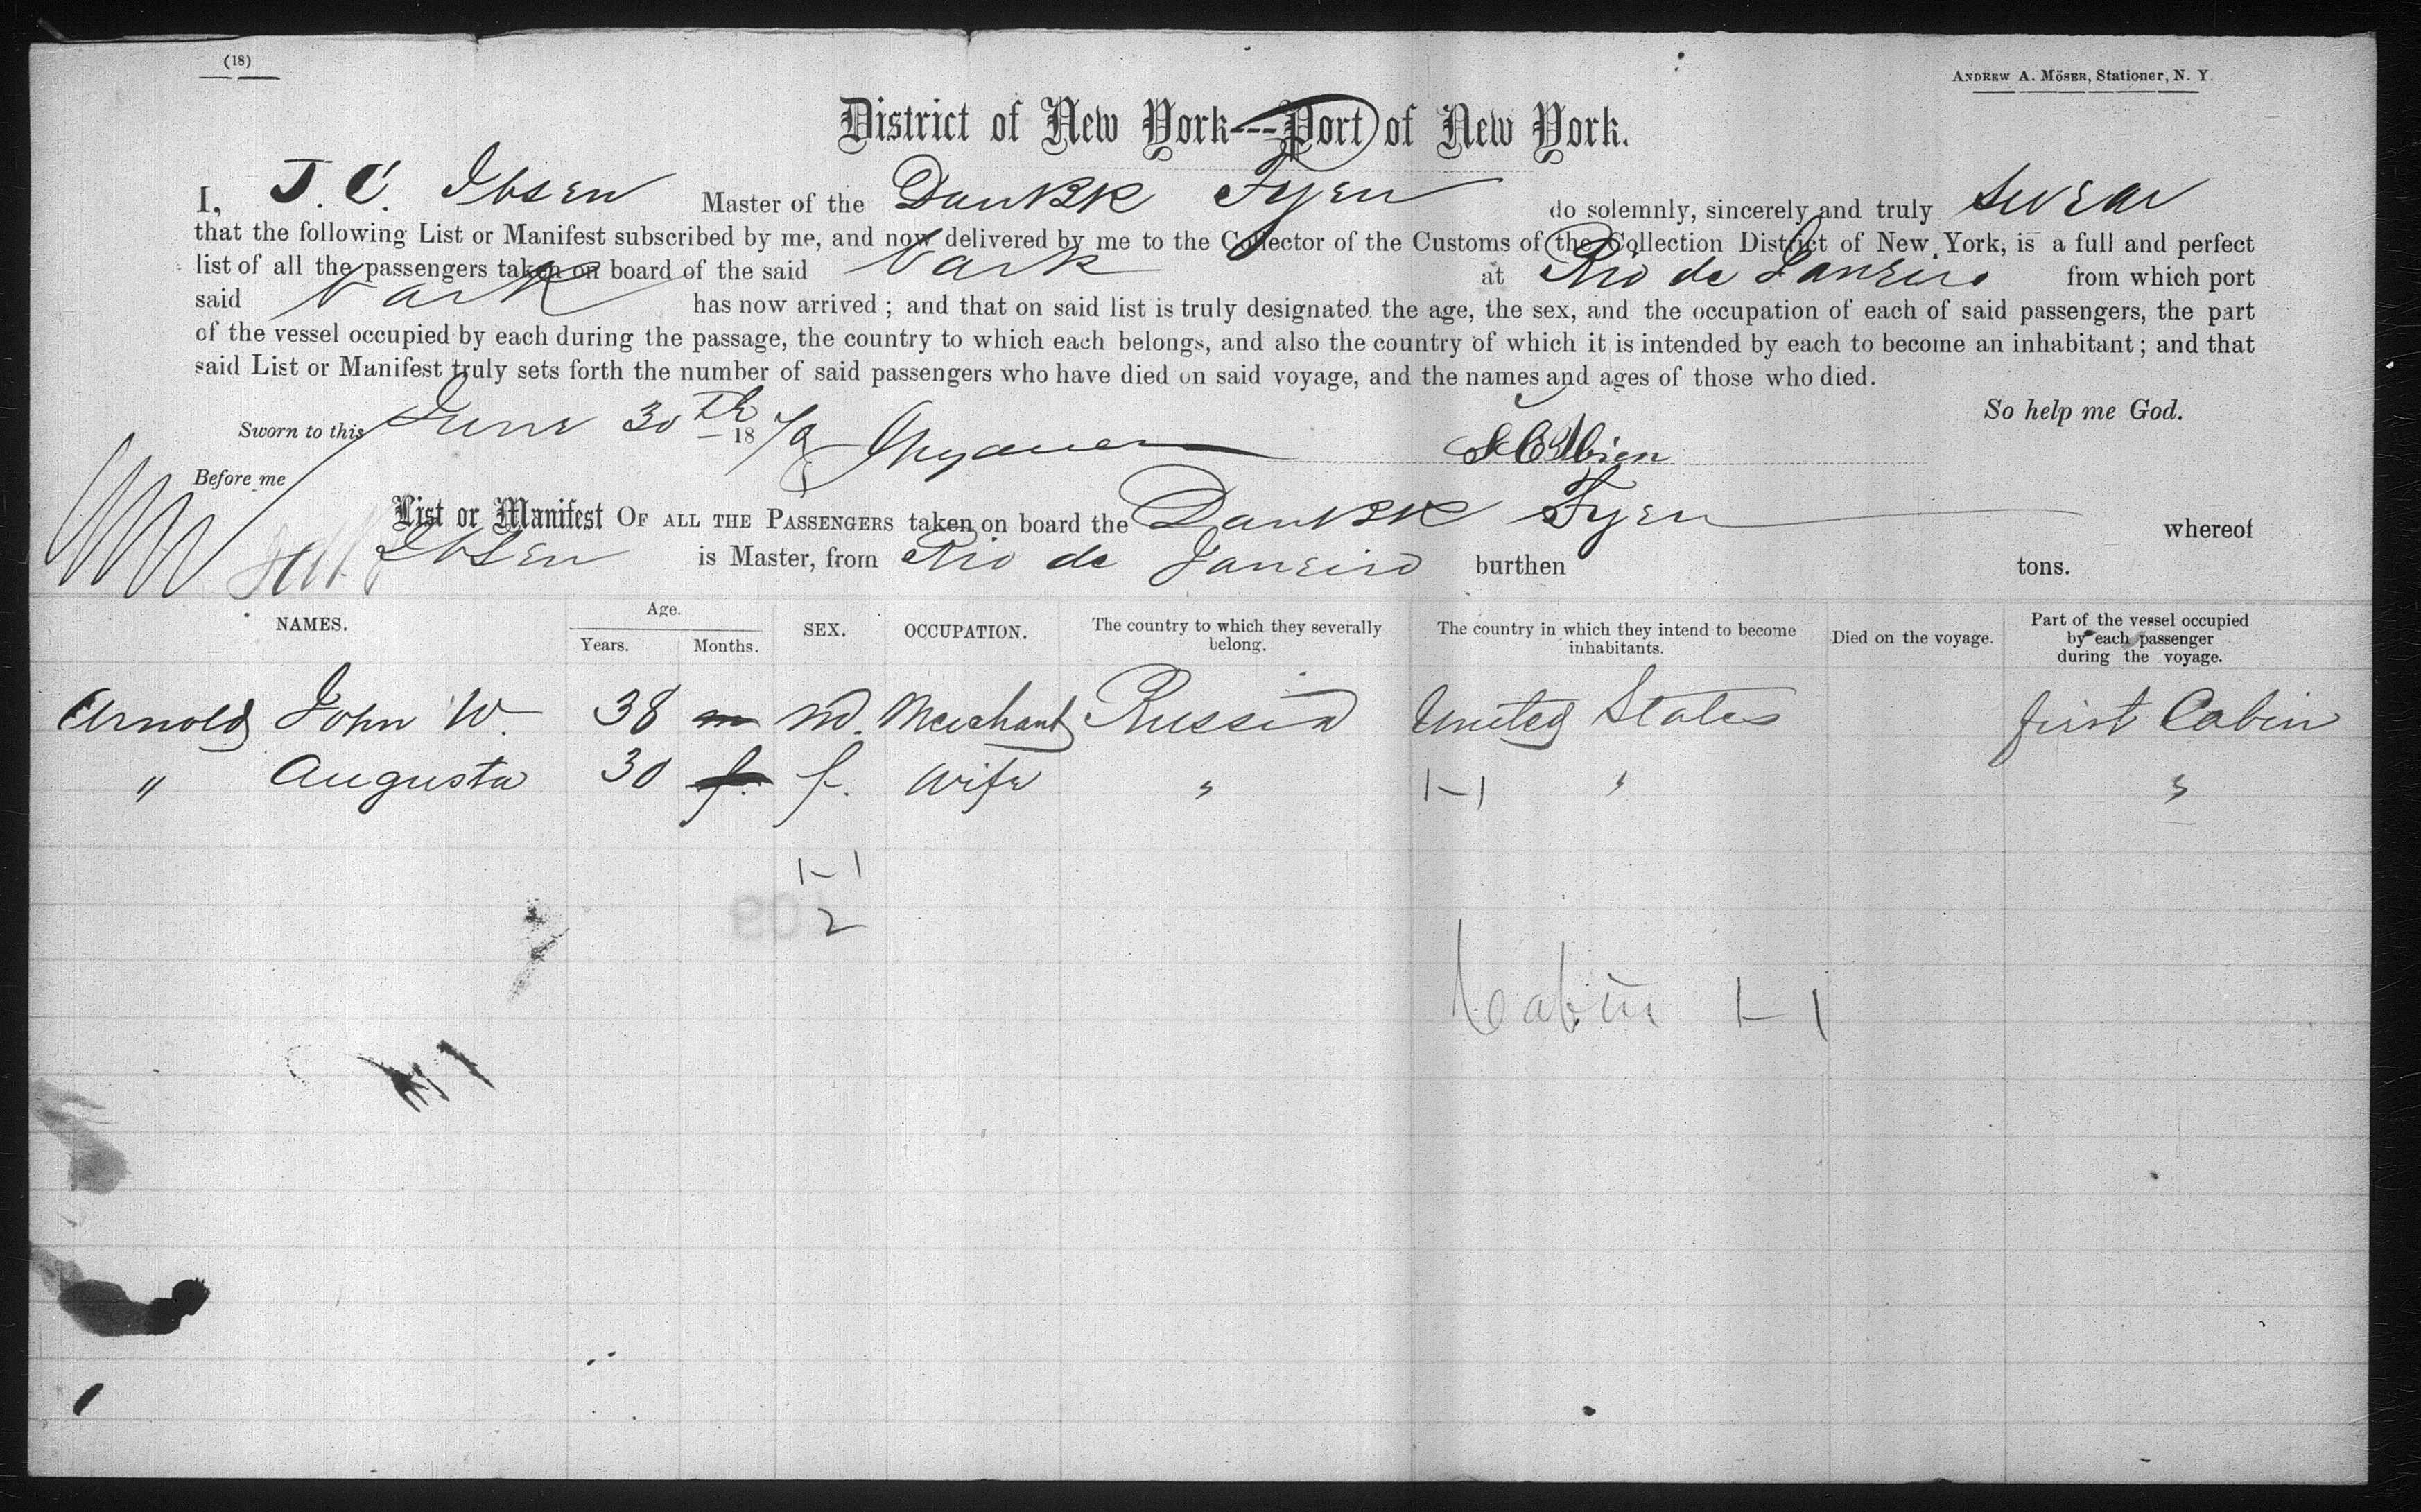 (18)
ANDREW A. MÖSER, Stationer, N. Y.
District of New York---Port of New York.
I, J. C. Ibsen Master of the Dan Bk Fyen do solemnly, sincerely and truly swear
that the following List or Manifest subscribed by me, and now delivered by me to the Collector of the Customs of the Collection District of New York, is a full and perfect
list of all the passengers taken on board of the said bark at Rio de Janeiro from which port
said bark has now arrived; and that on said list is truly designated the age, the sex, and the occupation of each of said passengers, the part
of the vessel occupied by each during the passage, the country to which each belongs, and also the country of which it is intended by each to become an inhabitant; and that
said List or Manifest truly sets forth the number of said passengers who have died on said voyage, and the names and ages of those who died.
So help me God.
Sworn to this June 30th 18
Before me
List or Manifest OF ALL THE PASSENGERS taken on board the Dan Bk Fyen whereof
Ibsen is Master, from Rio de Janeiro burthen tons.
NAMES. Age. Years. Months. SEX. OCCUPATION. The country to which they severally belong. The country in which they intend to become inhabitants. Died on the voyage. Part of the vessel occupied by each passenger during the voyage.
Arnold John W. 38 m m. Merchant Russia United States first Cabin
" Augusta 30 f. f. Wife " 1-1 " "
1-1
2
Cabin 1-1